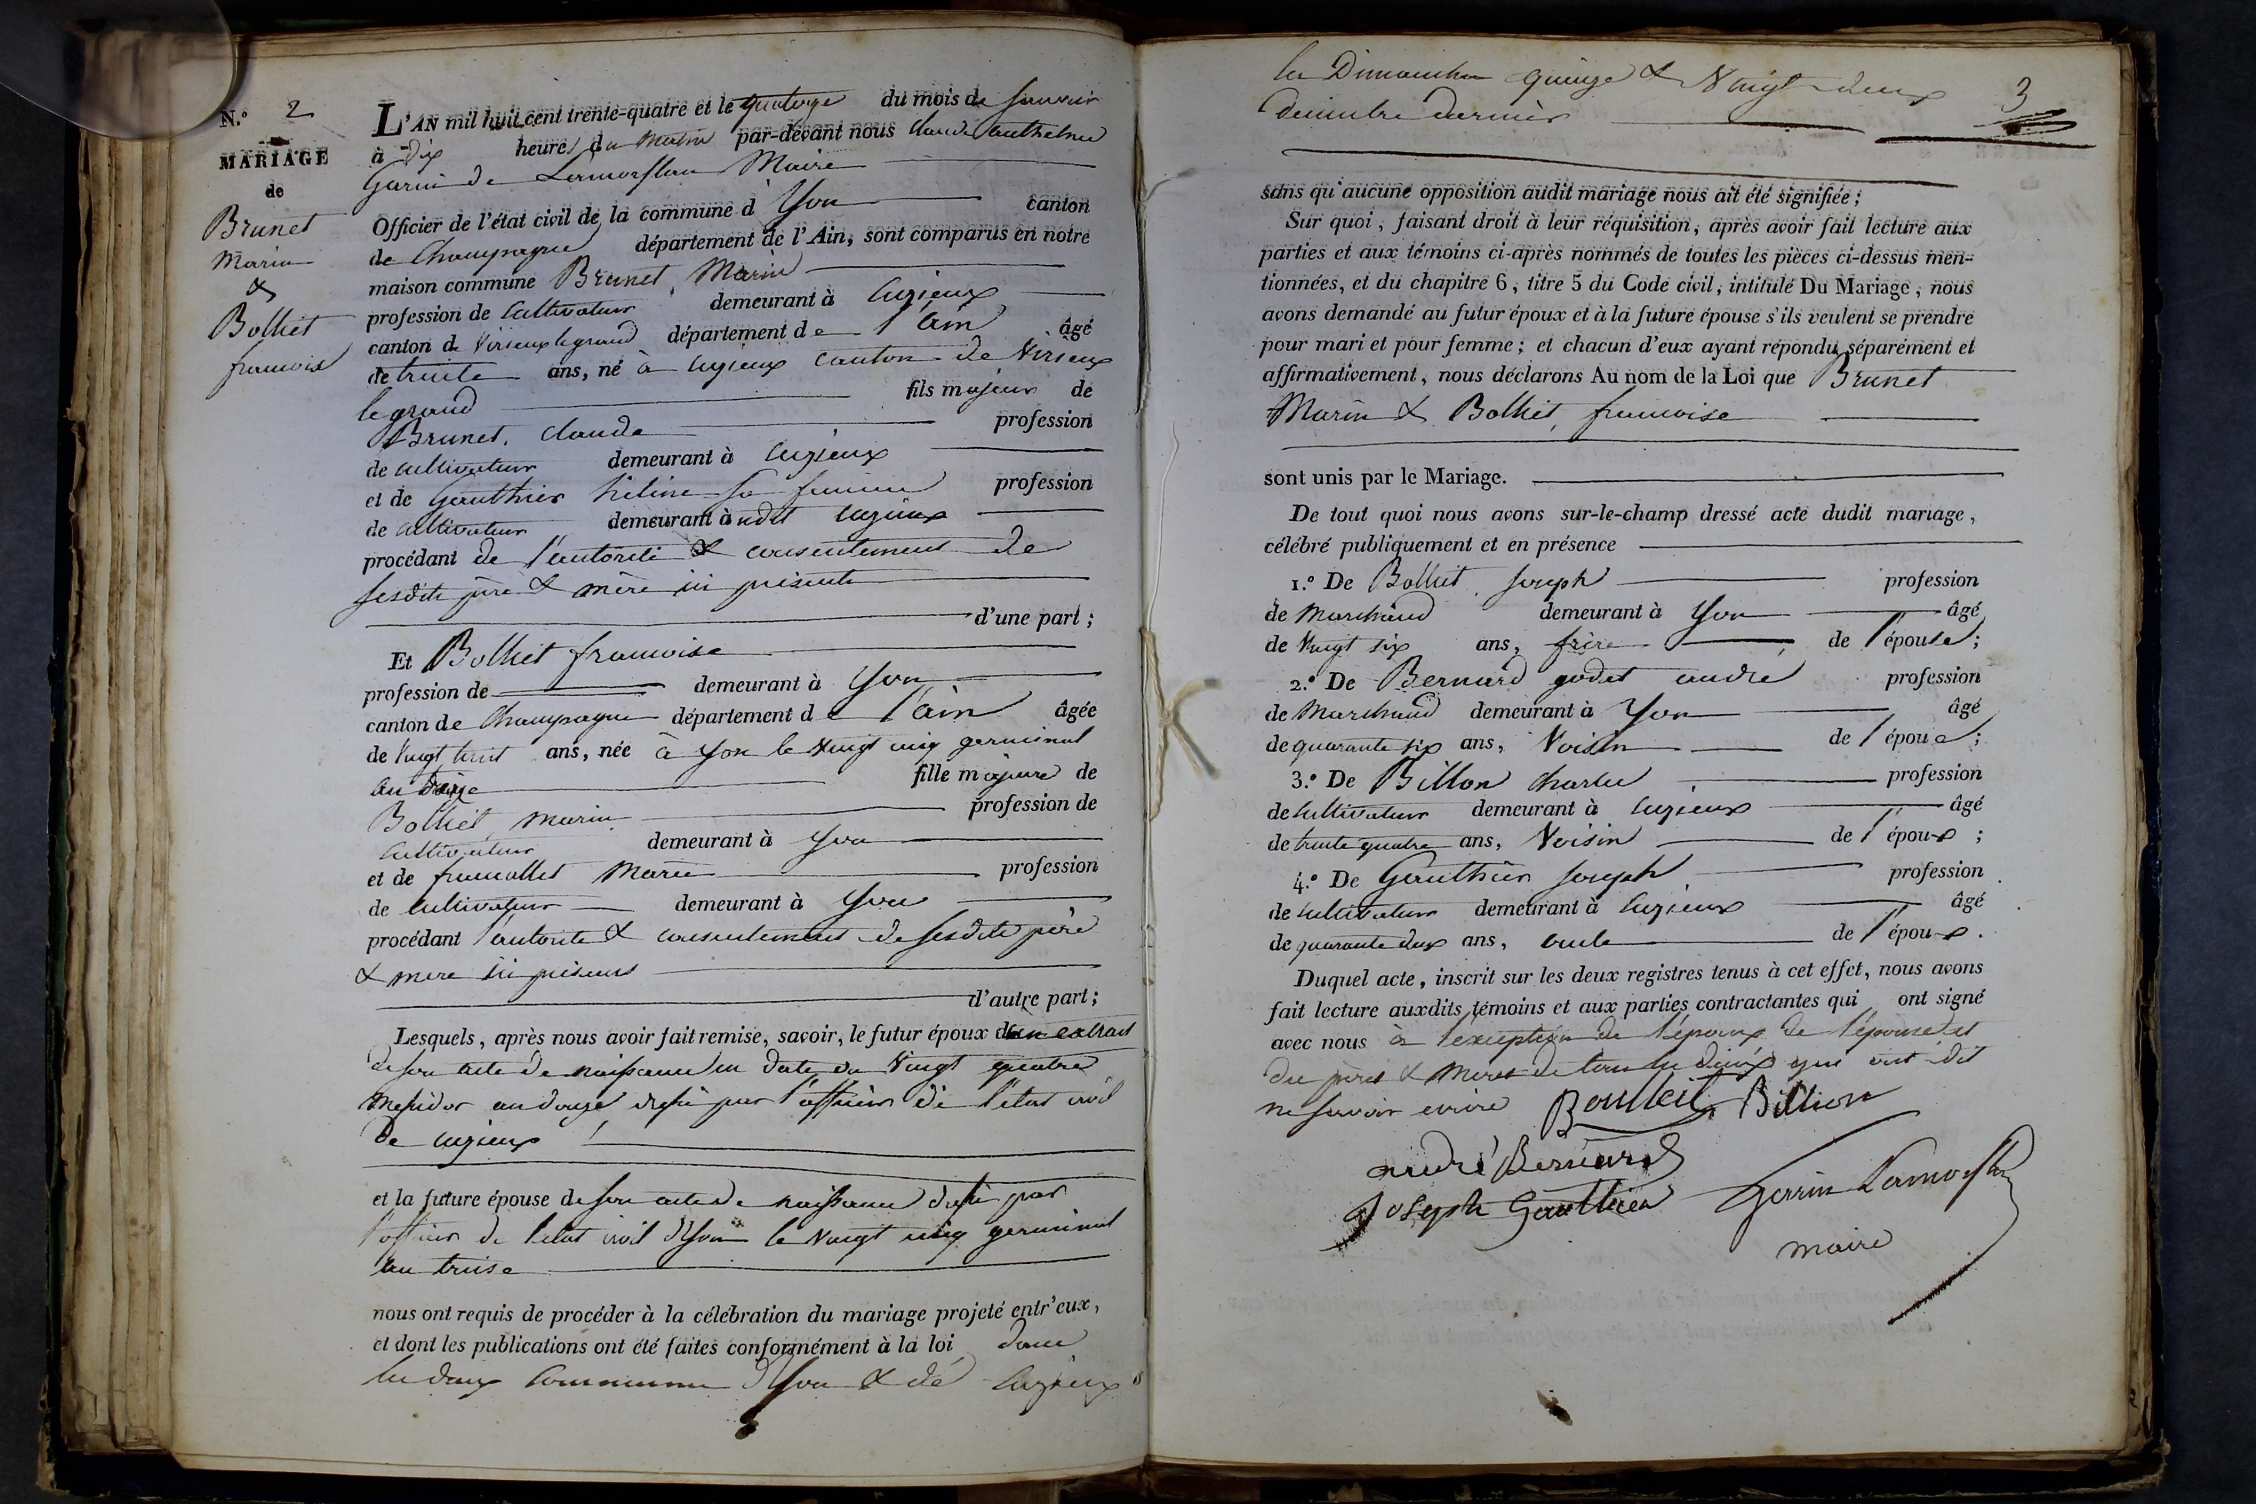 N.º 2
MARIAGE
de
Brunet
Marin
&
Bolliet
francoise
L'AN mil huit cent trente-quatre et le quatorze du mois de janvier
à dix heures du matin par-devant nous claude anthelme
Garin de Lamorflan Maire
Officier de l'état civil de la commune d'Yon canton
de Champagne département de l'Ain, sont comparus en notre
maison commune Brunet, Marin
profession de cultivateur demeurant à Cuzieux
canton de Virieux legrand département de l'ain âgé
de trente ans, né à cuzieux canton de Virieux
le grand fils majeur de
Brunet, claude profession
de cultivateur demeurant à Cuzieux
et de Gauthier héline sa femme profession
de cultivateur demeurant à udit cuzieux
procédant de l'autorité & consentement de
sesdits père & mère ici présents
d'une part ;
Et Bolliet francoise
profession de demeurant à Yon
canton de Champagne département de l'ain âgée
de vingt huit ans, née à yon le vingt cinq germinal
an treize fille majeure de
Bolliet, marin profession de
cultivateur demeurant à yon
et de francollet Marie profession
de cultivateur demeurant à Yon
procédant l'autorité & consentement de sesdits père
& mere ici présens
d'autre part ;
Lesquels, après nous avoir fait remise, savoir, le futur époux d'un extrait
de son acte de naissance en date du vingt quatre
messidor an douze dressé par l'officier de l'état civil
de cuzieux
et la future épouse de son acte de naissance dressé par
l'officier de l'état civil d'Yon le vingt cinq germinal
an treise
nous ont requis de procéder à la célébration du mariage projeté entr'eux,
et dont les publications ont été faites conformément à la loi dans
les deux communes d'Yon & de Cuzieux
les Dimanches quinze & Vingt-deux
décembre dernier
3
sans qu'aucune opposition audit mariage nous ait été signifiée ;
Sur quoi, faisant droit à leur réquisition, après avoir fait lecture aux
parties et aux témoins ci-après nommés de toutes les pièces ci-dessus men-
tionnées, et du chapitre 6, titre 5 du Code civil, intitulé Du Mariage, nous
avons demandé au futur époux et à la future épouse s'ils veulent se prendre
pour mari et pour femme ; et chacun d'eux ayant répondu séparément et
affirmativement, nous déclarons Au nom de la Loi que Brunet
Marin & Bolliet, francoise
sont unis par le Mariage.
De tout quoi nous avons sur-le-champ dressé acte dudit mariage,
célébré publiquement et en présence
1.º De Bolliet, joseph profession
de Marchand demeurant à Yon âgé
de vingt six ans, frère de l'épouse ;
2.º De Bernard godet andré profession
de Marchand demeurant à Yon âgé
de quarante six ans, Voisin de l'épouse ;
3.º De Billon charles profession
de cultivateur demeurant à cuzieux âgé
de trente quatre ans, Voisin de l'époux ;
4.º De Gauthier joseph profession
de cultivateur demeurant à Cuzieux âgé
de quarante deux ans, oncle de l'époux.
Duquel acte, inscrit sur les deux registres tenus à cet effet, nous avons
fait lecture auxdits témoins et aux parties contractantes qui ont signé
avec nous à l'exception de l'époux de l'épouse et
des pères & meres de tous les deux qui ont dit
ne savoir ecrire Boulleit Billion
andré Bernard
Joseph Gauthier Garin Lamorflan
maire